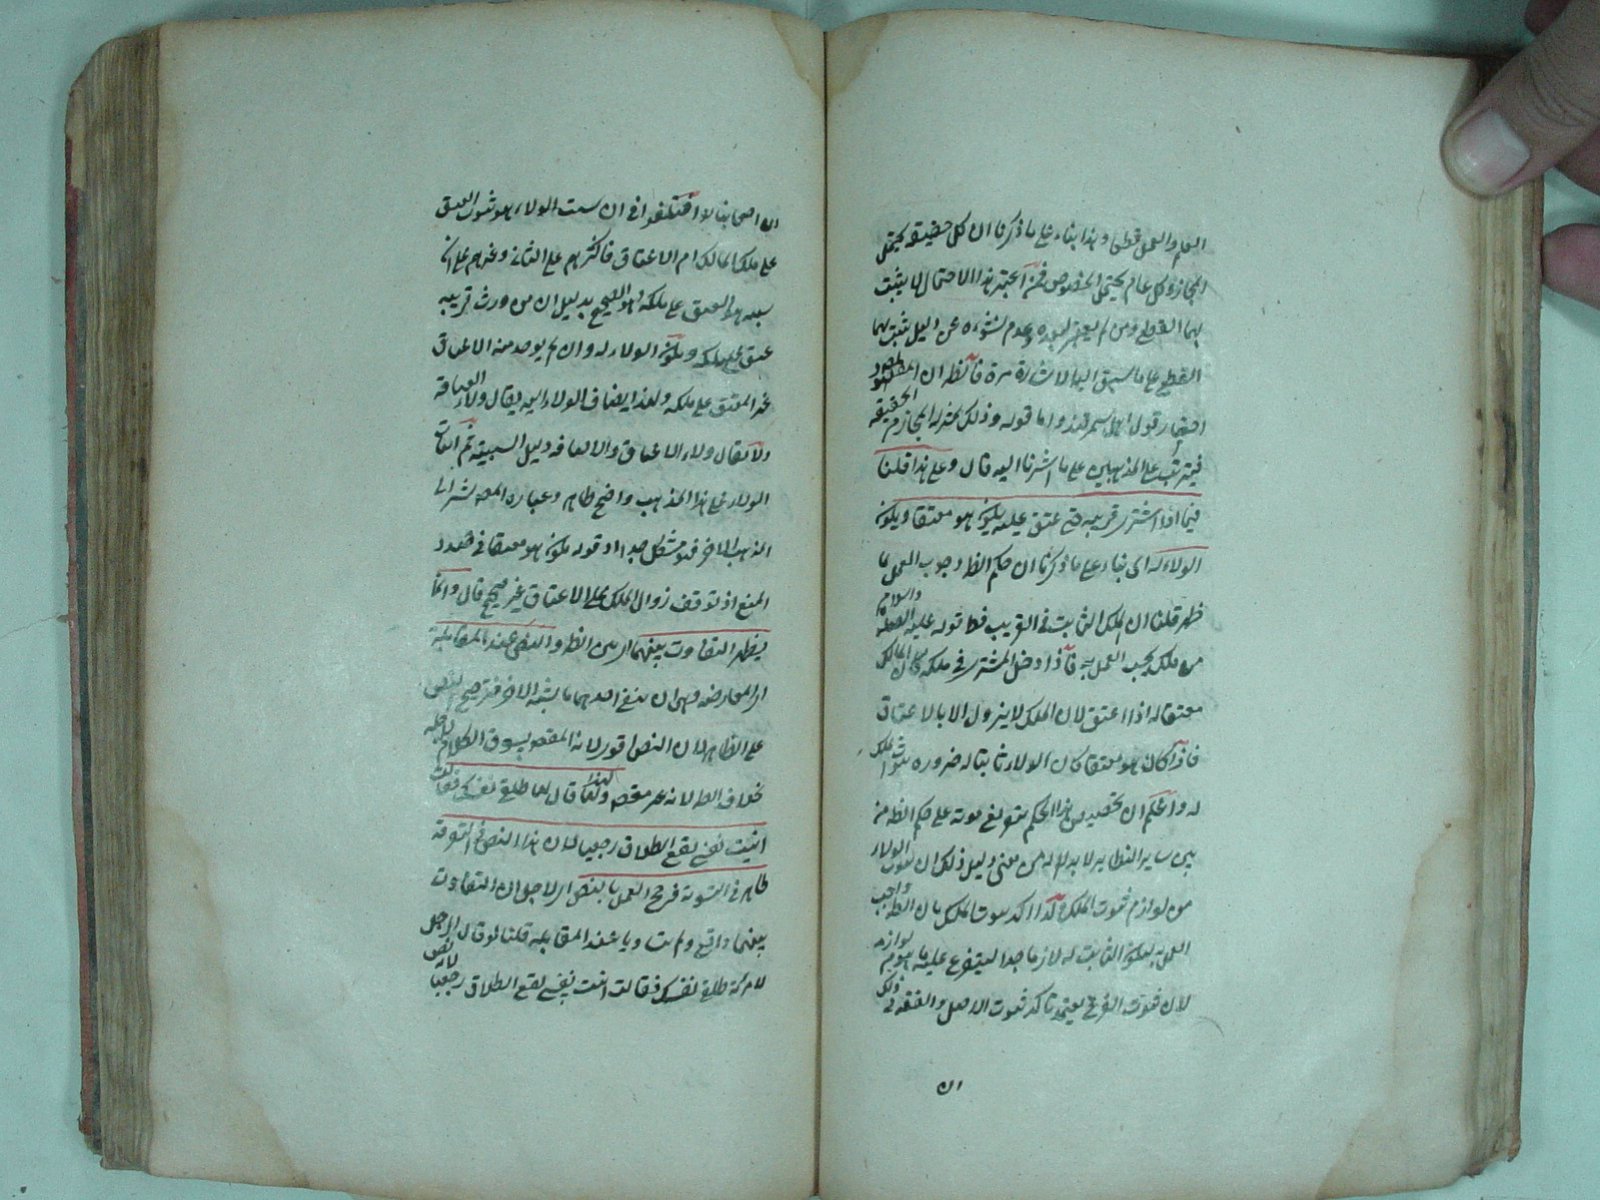 العلم والعمل قطعا وهذا بناء على ما ذكرنا ان كل حقيقة يحتمل
المجاز وكل عام يحتمل الخصوص فمن اعتبر هذا الاحتمال لم يثبت
بهما القطع ومن لم يعتبر لبعده وعدم نشوءه عن دليل يثبت بهما
القطع على ما سبق اليه الاشارة مرة فانظر ان المقصود
اختيار قول اهل سمرقند واما قوله وذلك بمنزلة المجاز مع الحقيقة
فيترتب على المذهبين على ما اشرنا اليه قال وعلى هذا قلنا
فيما اذا اشترى قريبه حتى عتق عليه يكون هو معتقا ويكون
الولاء له اى بناء على ما ذكرنا ان حكم الظ وجوب العمل بما
ظهر قلنا ان الملك الثابت فى القريب فظ قوله عليه الصلوة والسلام
من ملك يجب العمل به فاذا دخل المشترى فى ملكه كان المالك
معتقا له اذا اعتق لان الملك لا يزول الا بالاعتاق
فاذا كان هو معتقا كان الولاء ثابتا له ضرورة ثبوت الملك
له واعلم ان تخصيص هذا الحكم بتفريع ثبوته على حكم الظ من
بين ساير النظاير لا بد له من معنى ولعل ذلك ان ثبوت الولاء
من لوازم ثبوت الملك فلذا اكد ثبوت الملك بان الظ واجب
العمل به ليكون الثابت له لازما جدا ليتفرع عليه ما هو من لوازمه
لان ثبوت الفرع يعتمد تاكد ثبوت الاصل والفقه فى ذلك
ان
ان اصحابنا اختلفوا فى ان سبب الولاء هو ثبوت العتق
على ملك المالك ام الاعتاق فاكثرهم على الثانى وغيرهم على ان
سببه هو العتق على ملكه وهو الصحيح بدليل ان من ورث قريبه
عتق عليه ملكه ويكون الولاء له وان لم يوجد منه الاعتاق
عند المعتق على ملكه ولهذا يضاف الولاء اليه يقال ولاء العتاقة
ولا يقال ولاء الاعتاق والاضافة دليل السببية ثم اثبات
الولاء على هذا المذهب واضح ظاهر وعبارة المص تشير الى
المذهب الاخر فهو مشكل جدا اذ قوله يكون هو معتقا فى حدود
المنع اذ توقف زوال الملك على الاعتاق غير صحيح قال وانما
يظهر التفاوت بينهما اى بين الظ والنص عند المقابلة
اى المعارضة وهى ان ينفى احدهما ما يثبته الاخر فترجح النص
على الظاهر لان النص اقوى لانه المقصود بسوق الكلام لاجله
بخلاف الظ لانه غير مقصود ولهذا قال لها طلقى نفسك فقالت
ابنت نفسى يقع الطلاق رجعيا لان هذا النص فى التفرقة
ظاهر فى البينونة فرجح العمل بالنص اى لاجل ان التفاوت
بينهما واقع وليست وبا عند المقابلة قلنا لو قال الرجل
لامراته طلقى نفسك فقالت ابنت نفسى يقع الطلاق رجعيا لانه نص